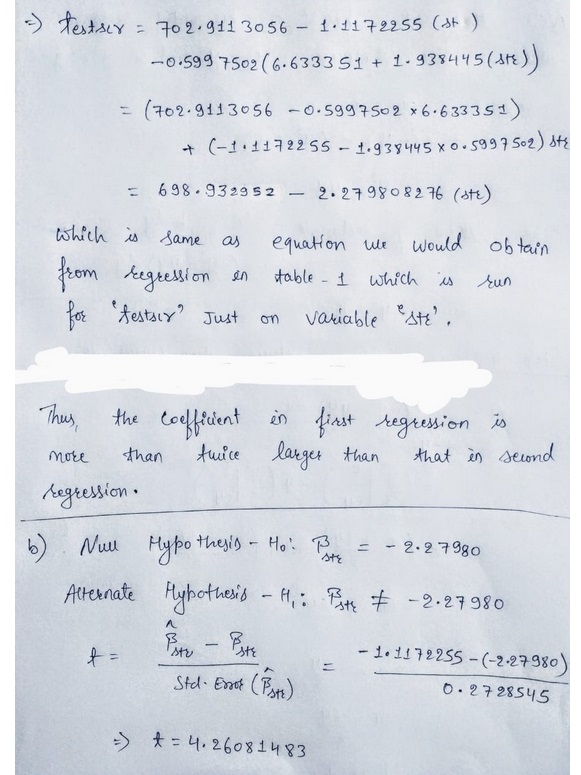 =) testscr = 702.9113056 - 1.1172255 (st )
-0.5997502(6.633351 + 1.938445(str))
= (702.9113056 - 0.5997502 x 6.633351)
+ (-1.1172255 - 1.938445 x 0.5997502) str
= 698.932952 - 2.279808276 (str)
which is same as equation we would obtain
from regression in table - 1 which is run
for 'testscr' Just on variable 'str'.
Thus, the coefficient in first regression is
more than twice larger than that in second
regression.
b) Null Hypothesis - H₀: β_str = - 2.27980
Alternate Hypothesis - H₁: β_str ≠ -2.27980
t = (β̂_str - β_str) / Std. Error (β̂_str) = (-1.1172255 - (-2.27980)) / 0.2728545
=) t = 4.26081483